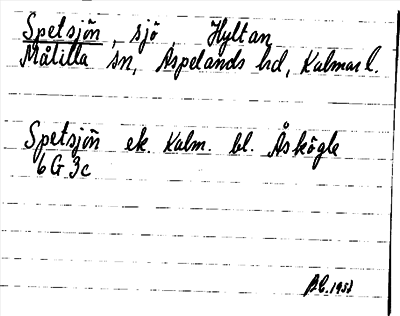 Spetsjön, sjö, Hyltan
Målilla sn, Aspelands hd, Kalmar l.
Spetsjön ek. Kalm. bl. Åskögle
6G 3c